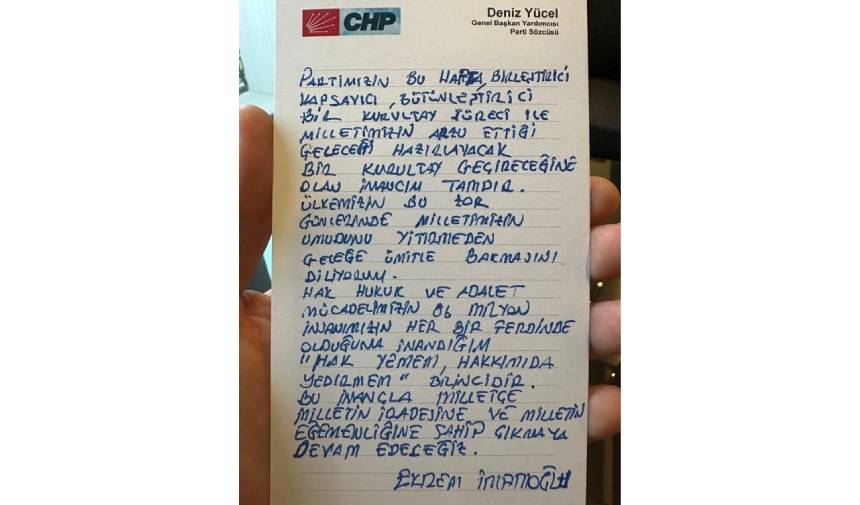 CHP
Deniz Yücel
Genel Başkan Yardımcısı
Parti Sözcüsü
PARTİMİZİN BU HAFTA, BİRLEŞTİRİCİ
KAPSAYICI, BÜTÜNLEŞTİRİCİ
BİR KURULTAY SÜRECİ İLE
MİLLETİMİZİN ARZU ETTİĞİ
GELECEĞİ HAZIRLAYACAK
BİR KURULTAY GEÇİRECEĞİNE
OLAN İNANCIM TAMDIR.
ÜLKEMİZİN BU ZOR
GÜNLERİNDE MİLLETİMİZİN
UMUDUNU YİTİRMEDEN
GELEĞE ÜMİTLE BAKMASINI
DİLİYORUM.
HAK HUKUK VE ADALET
MÜCADELİMİZİN 86 MİLYON
İNSANIMIZIN HER BİR FERDİNDE
OLDUĞUNA İNANDIĞIM
"HAK YEMEM, HAKKIMIDA
YEDİRMEM" BİLİNCİDİR.
BU İNANÇLA MİLLETÇE
MİLLETİN İRADESİNE VE MİLLETİN
EGEMENLİĞİNE SAHİP ÇIKMAYA
DEVAM EDECEĞİZ.
EKREM İMAMOĞLU